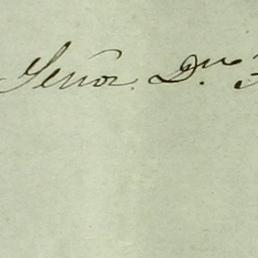 Señor. Dn.